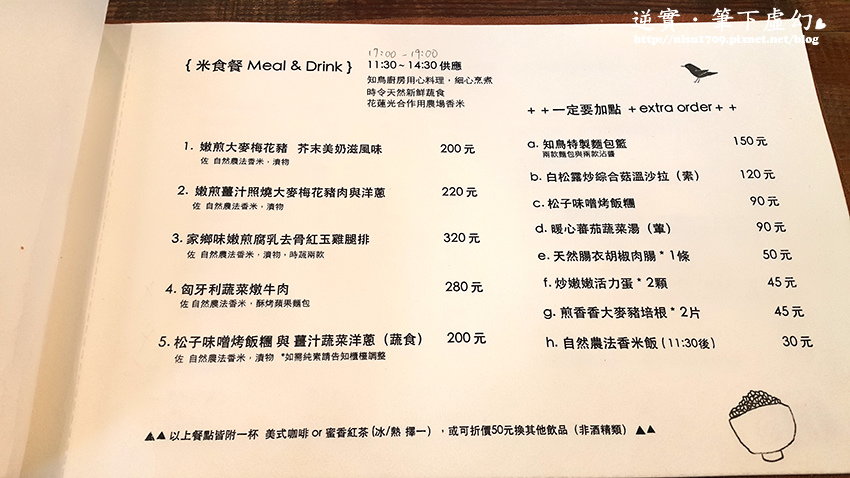 逆實・筆下虛幻
http://nixa1709.pixnet.net/blog
{ 米食餐 Meal & Drink }
17:00 - 19:00
11:30 ~ 14:30 供應
知鳥廚房用心料理，細心烹煮
時令天然新鮮蔬食
花蓮光合作用農場香米
1. 嫩煎大麥梅花豬 芥末美奶滋風味 200 元
佐 自然農法香米，漬物
2. 嫩煎薑汁照燒大麥梅花豬肉與洋蔥 220 元
佐 自然農法香米，漬物
3. 家鄉味嫩煎腐乳去骨紅玉雞腿排 320 元
佐 自然農法香米，漬物，時蔬兩款
4. 匈牙利蔬菜燉牛肉 280 元
佐 自然農法香米，酥烤蘋果麵包
5. 松子味噌烤飯糰 與 薑汁蔬菜洋蔥（蔬食） 200 元
佐 自然農法香米，漬物 *如需純素請告知櫃檯調整
+ + 一定要加點 + extra order + +
a. 知鳥特製麵包籃 150 元
兩款麵包與兩款沾醬
b. 白松露炒綜合菇溫沙拉（素） 120 元
c. 松子味噌烤飯糰 90 元
d. 暖心蕃茄蔬菜湯（葷） 90 元
e. 天然腸衣胡椒肉腸 * 1條 50 元
f. 炒嫩嫩活力蛋 * 2顆 45 元
g. 煎香香大麥豬培根 * 2片 45 元
h. 自然農法香米飯 ( 11:30後 ) 30 元
▲▲ 以上餐點皆附一杯 美式咖啡 or 蜜香紅茶 (冰/熱 擇一），或可折價50元換其他飲品（非酒精類） ▲▲